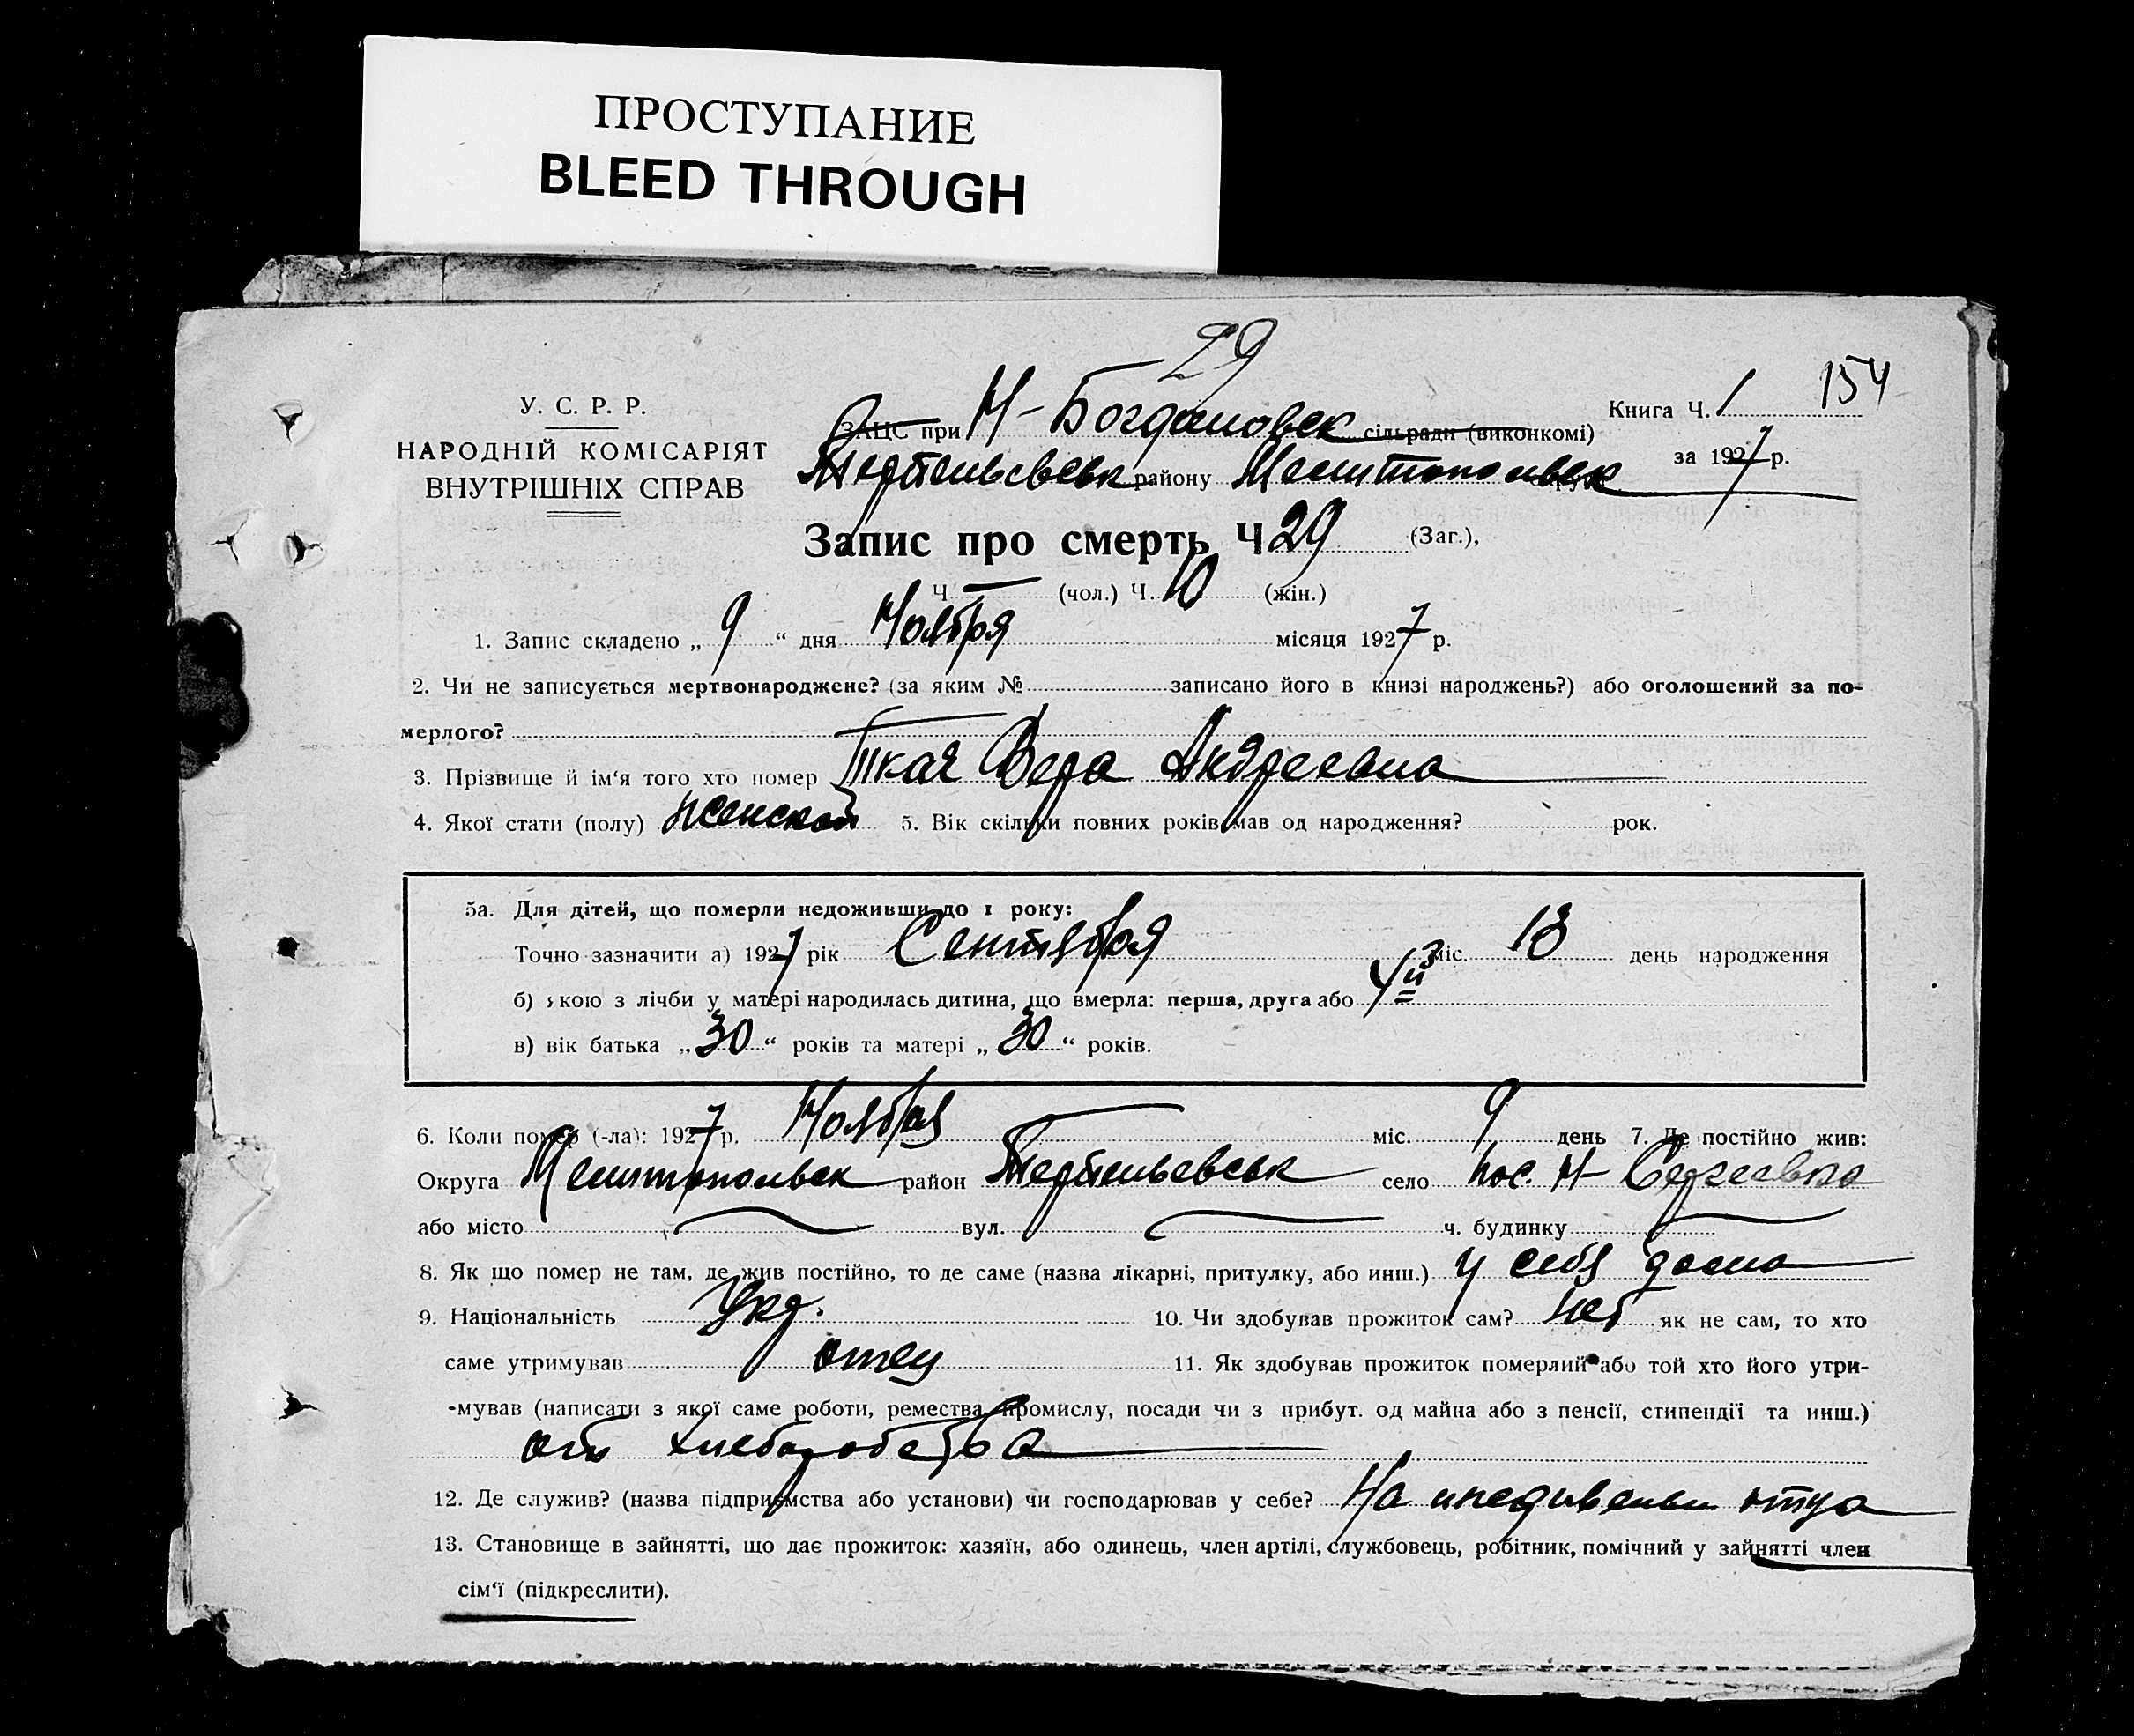 ПРОСТУПАНИЕ
BLEED THROUGH
29
У. С. Р. Р.
НАРОДНІЙ КОМІСАРІЯТ
ВНУТРІШНІХ СПРАВ
ЗАЦС при Н-Богдановск сільради (виконкомі)
Книга Ч. 1 154
району Мелитопольск
за 1927 р.
Запис про смерть Ч 29 (Заг.),
Ч. — (чол.) Ч. 10 (жін.)
1. Запис складено „ 9 “ дня Ноября місяця 1927 р.
2. Чи не записується мертвонароджене? (за яким № записано його в книзі народжень?) або оголошений за по-
мерлого?
3. Прізвище й ім‘я того хто помер Ткач Вера Андреевна
4. Якої стати (полу) женской 5. Вік скільки повних років мав од народження? рок.
5а. Для дітей, що померли недоживши до 1 року:
Точно зазначити а) 1927 рік Сентября міс. 13 день народження
б) якою з лічби у матері народилась дитина, що вмерла: перша, друга або 4й
в) вік батька „ 30 “ років та матері „ 30 “ років.
6. Коли помер (-ла): 1927 р. Ноября міс. 9 день 7. Де постійно жив:
Округа Мелитопольск район село пос. Н-Сергеевка
або місто вул. ч. будинку
8. Як що помер не там, де жив постійно, то де саме (назва лікарні, притулку, або инш.) у себя дома
9. Національність Укр. 10. Чи здобував прожиток сам? нет як не сам, то хто
саме утримував отец 11. Як здобував прожиток померлий або той хто його утри-
-мував (написати з якої саме роботи, ремества, промислу, посади чи з прибут. од майна або з пенсії, стипендії та инш.)
от хлеборобства
12. Де служив? (назва підприємства або установи) чи господарював у себе? На иждивении отца
13. Становище в зайнятті, що дає прожиток: хазяїн, або одинець, член артілі, службовець, робітник, помічний у зайнятті член
сім‘ї (підкреслити).